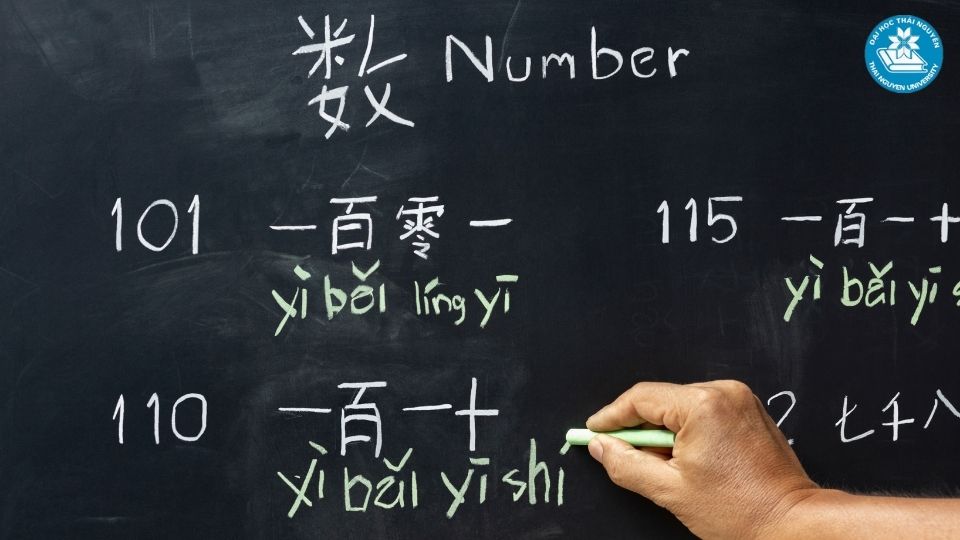 数 Number
ĐẠI HỌC THÁI NGUYÊN
THAI NGUYEN UNIVERSITY
101 一百零一
yì bǎi líng yī
115 一百一十
yì bǎi yī s
110 一百一十
yì bǎi yī shí
2 七千八